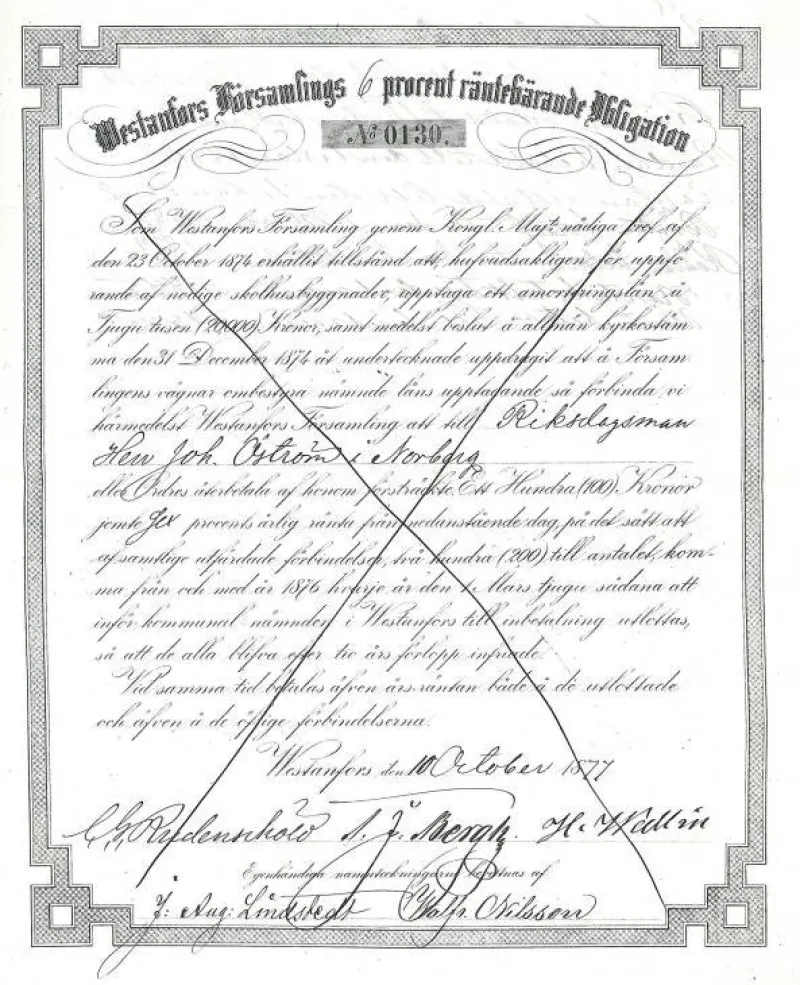 Westanfors Församlings 6 procent räntebärande Obligation
No 0130.
Som Westanfors Församling genom Kongl. Majts nådiga bref af
den 23 October 1874 erhållit tillstånd att, hufvudsakligen för uppfö
rande af nödige skolhusbyggnader, upptaga ett amorteringslån å
Tjugu tusen (20000) Kronor, samt medelst beslut å allmän kyrkostäm
ma den 31 December 1874 åt undertecknade uppdragit att å Försam
lingens vägnar ombestyra nämnde låns upptagande så förbinda vi
härmedelst Westanfors Församling att till Riksdagsman
Herr Joh. Öström i Norberg
eller Ordres återbetala af honom försträckte Ett Hundra (100) Kronor
jemte Sex procents årlig ränta från nedanstående dag, på det sätt att
af samtlige utfärdade förbindelser, två hundra (200) till antalet, kom-
ma från och med år 1876 hvarje år den 1 Mars tjugu sådana att
inför kommunal nämnden i Westanfors till inbetalning utlottas,
så att de alla blifva efter tio års förlopp infriade.
Vid samma tid betalas äfven års-räntan både å de utlottade
och äfven å de öfrige förbindelserna.
Westanfors den 10 October 1877
C. G. Rudenschöld A. J. Bergh. H. Wedlin
Egenhändiga namnteckningarne bevittnas af
J: Aug: Lindstedt Nilsson